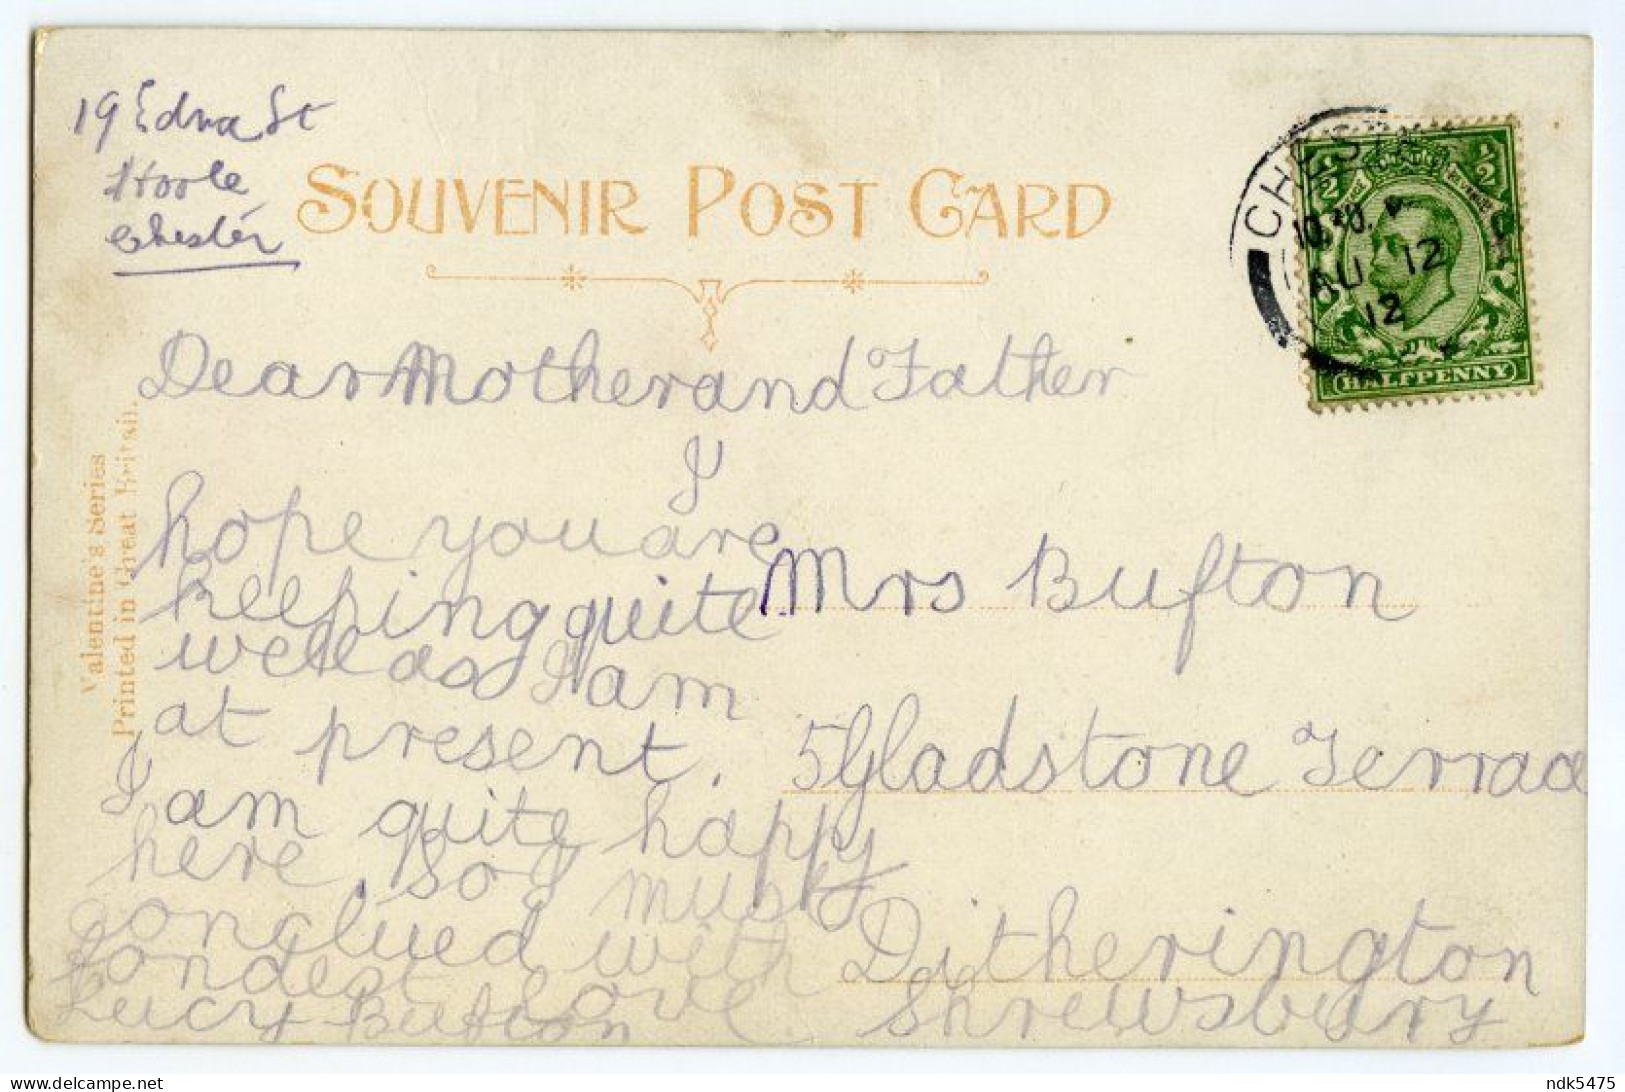 19 Edna St
Hoole
Chester
SOUVENIR POST CARD
CHESTER
10.30 P
AU 12
12
½ ½
HALFPENNY
Valentine's Series
Printed in Great Britain.
Dear Mother and Father
I
hope you are
keeping quite
well as I am
at present.
I am quite happy
here, so I must
conglued with
fondest love
Lucy Bufton
Mrs Bufton
5 Gladstone Terrace
Ditherington
Shrewsbury
ndk5475